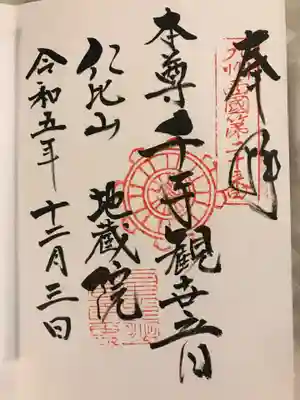 奉拝
本尊 千手観世音
仁比山 地蔵院
令和五年 十二月三日